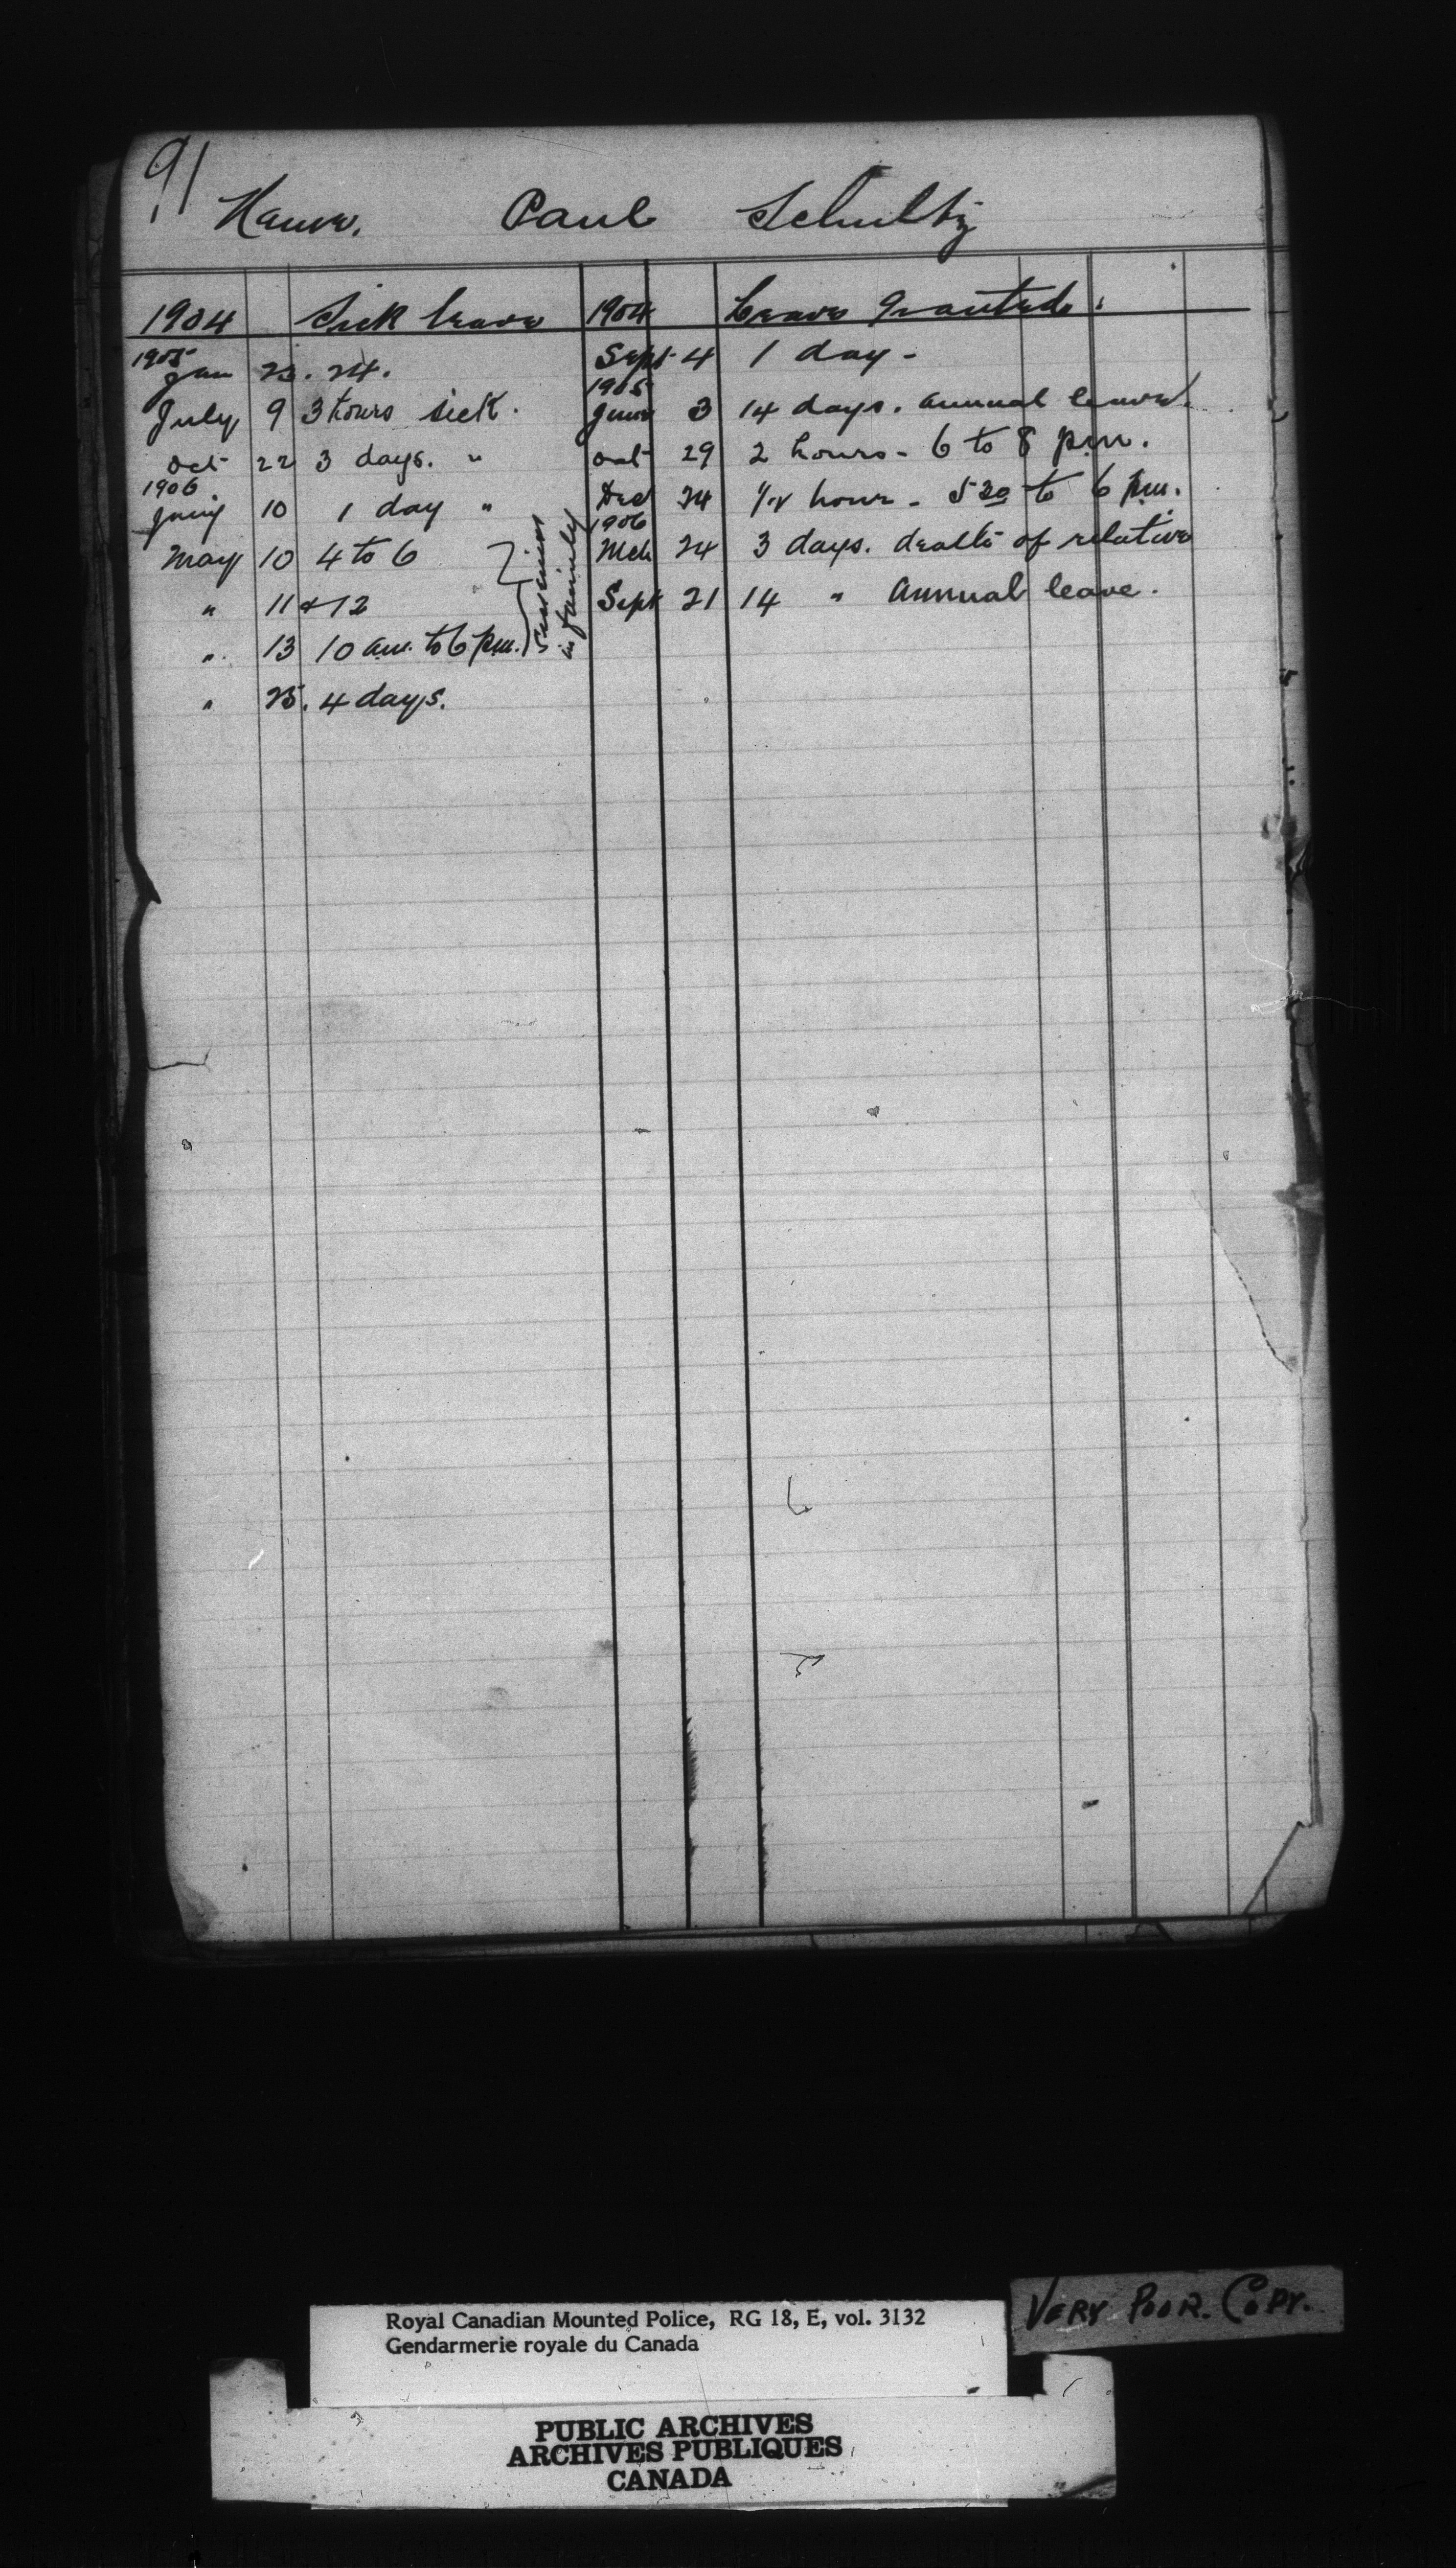 91
Name. Paul Schultz
1904 Sick leave 1904 Leave Granted.
1905 Jan 23. 24. Sept 4 1 day -
July 9 3 hours sick. 1905 June 3 14 days. annual leave.
Oct 22 3 days. " Oct 29 2 hours - 6 to 8 p.m.
1906 10 1 day " Dec 24 1/2 hour - 5 30 to 6 p.m.
May 10 4 to 6 1906 Mch 24 3 days. death of relative
" 11 & 12 Sept 21 14 " annual leave.
" 13 10 am. to 6 p.m.
in family
" 25. 4 days.
VERY POOR. COPY.
Royal Canadian Mounted Police, RG 18, E, vol. 3132
Gendarmerie royale du Canada
PUBLIC ARCHIVES
ARCHIVES PUBLIQUES
CANADA